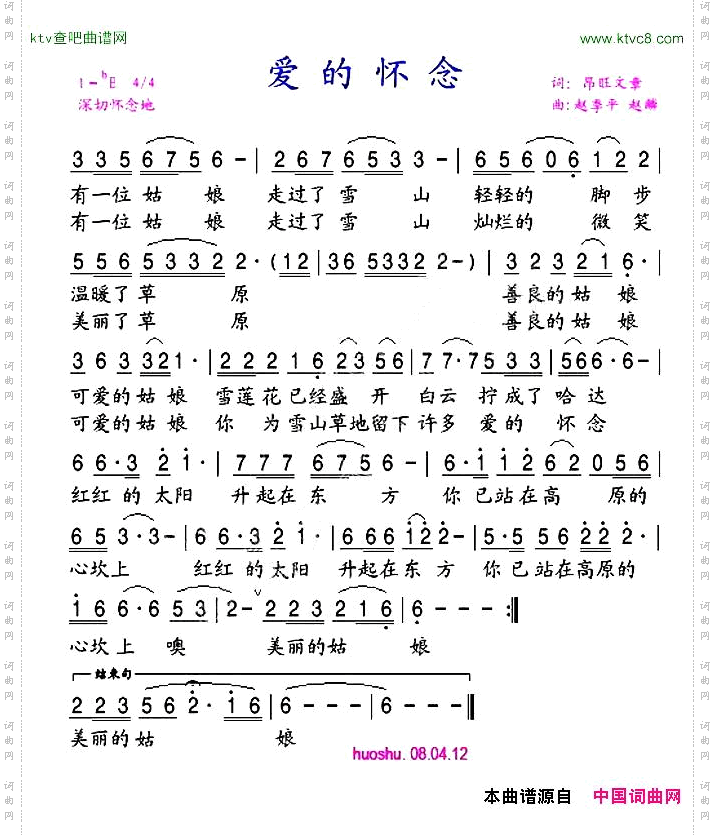 ktv查吧曲谱网 www.ktvc8.com
爱的怀念
1=bE 4/4 词: 昂旺文章
深切怀念地 曲: 赵季平 赵麟
3 3 5 6 7 5 6 - | 2 6 7 6 5 3 3 - | 6 5 6 0 6 1 2 2 |
有一位姑 娘 走过了雪 山 轻轻的 脚 步
有一位姑 娘 走过了雪 山 灿烂的 微 笑
5 5 6 5 3 3 2 2· (12 | 36 5332 2 -) | 3 2 3 2 1 6· |
温暖了草 原 善良的姑 娘
美丽了草 原 善良的姑 娘
3 6 3 321· | 2 2 2 1 6 2 3 5 6 | 7 7·7 5 3 3 | 566 6·6 - |
可爱的姑娘 雪莲花已经盛 开 白云 拧成了哈达
可爱的姑娘 你 为雪山草地留下许多 爱的 怀念
6 6·3 2 1· | 7 7 7 6 7 5 6 - | 6·1 1 2 6 2 0 5 6 |
红红的太阳 升起在东 方 你已站在高 原的
6 5 3·3 - | 6 6·3 2 1· | 6 6 6 1 2 2 - | 5·5 5 6 2 2 5 6 |
心坎上 红红的太阳 升起在东方 你已站在高原的
1 6 6·6 5 3 | 2 - ∨ 2 2 3 2 1 6 | 6 - - - :‖
心坎上 噢 美丽的姑 娘
结束句
2 2 3 5 6 2· 1 6 | 6 - - - | 6 - - - ‖
美丽的姑 娘
huoshu. 08.04.12
本曲谱源自 中国词曲网
词曲网